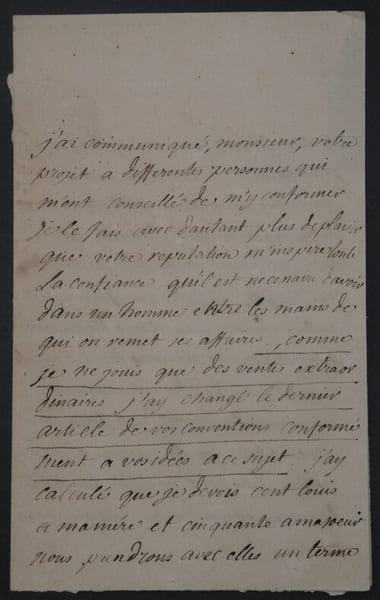 j'ai communiqué, monsieur, votre
projet a differentes personnes qui
m'ont conseillé de m'y conformer
je le fais avec dautant plus de plaisir
que votre reputation m'inspire toute
La confiance qu'il est necessaire d'avoir
dans un homme entre les mains de
qui on remet ses affaires, comme
je ne jouis que des ventes extraor
dinaires j'ay changé le dernier
article de vos conventions conformé
ment a vos idées a ce sujet j'ay
calculé que je devois cent louis
a ma mére et cinquante a ma soeur
nous prendrons avec elles un terme